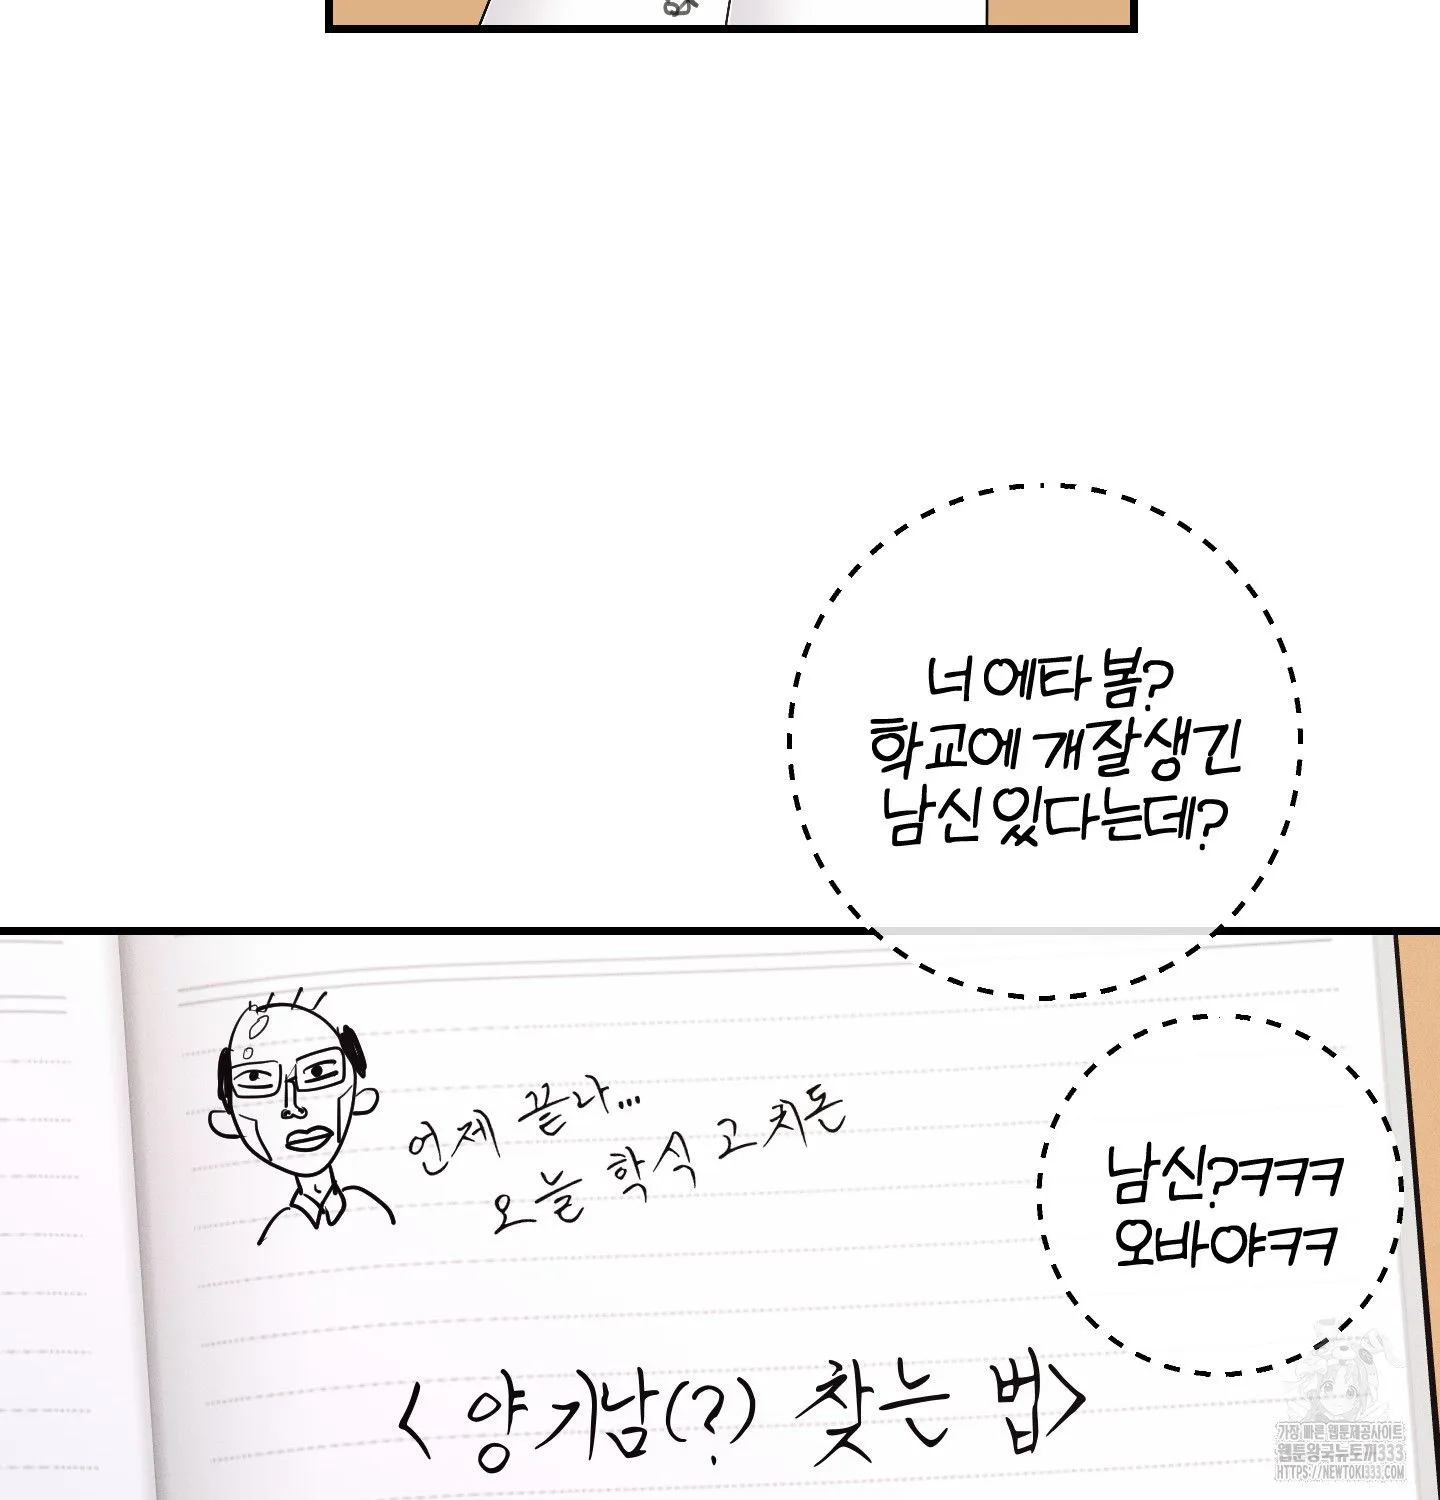 너 에타 봄?
학교에 개잘생긴
남신 있다는데?
남신?ㅋㅋㅋ
오바야ㅋㅋ
언제 끝나...
오늘 학식 고치돈
< 양기남(?) 찾는 법>
가장 빠른 웹툰제공사이트
웹툰왕국뉴토끼333
HTTPS://NEWTOKI333.COM